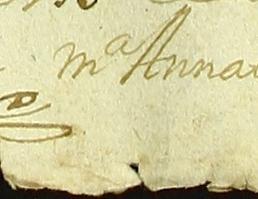 mª Anna